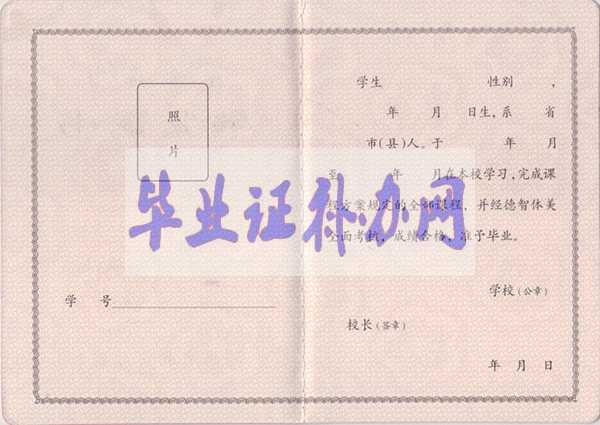 照
片
学　号
学生　性别　，
年　月　日生，系　省
市（县）人。于　年　月
至　年　月在本校学习，完成课
程方案规定的全部课程，并经德智体美
全面考核，成绩合格，准予毕业。
学校（公章）
校长（签章）
年　月　日
毕业证补办网